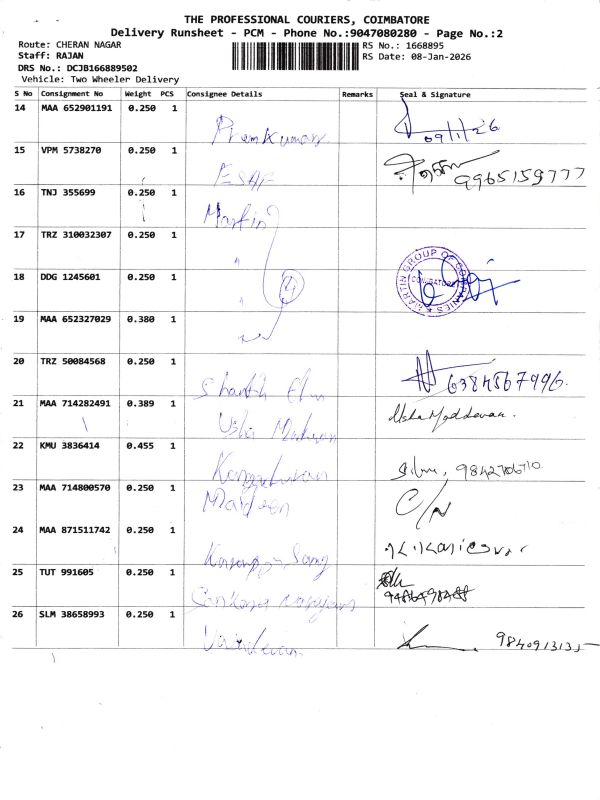 THE PROFESSIONAL COURIERS, COIMBATORE
Delivery Runsheet - PCM - Phone No.:9047080280 - Page No.:2
Route: CHERAN NAGAR
Staff: RAJAN
DRS No.: DCJB166889502
Vehicle: Two Wheeler Delivery
RS No.: 1668895
RS Date: 08-Jan-2026
S No Consignment No Weight PCS Consignee Details Remarks Seal & Signature
14 MAA 652901191 0.250 1 Premkumar 09/1/26
15 VPM 5738270 0.250 1 ESAF 9965159777
16 TNJ 355699 0.250 1 Martin
17 TRZ 310032307 0.250 1 "
18 DDG 1245601 0.250 1 " 4
MARTIN GROUP OF COMPANIES COIMBATORE
19 MAA 652327029 0.380 1
20 TRZ 50084568 0.250 1 6384567996.
21 MAA 714282491 0.389 1 Usha Madhavan Usha Maddevan.
22 KMU 3836414 0.455 1 9842706710
23 MAA 714800570 0.250 1 C/N
24 MAA 871511742 0.250 1
25 TUT 991605 0.250 1
26 SLM 38658993 0.250 1 9840913135